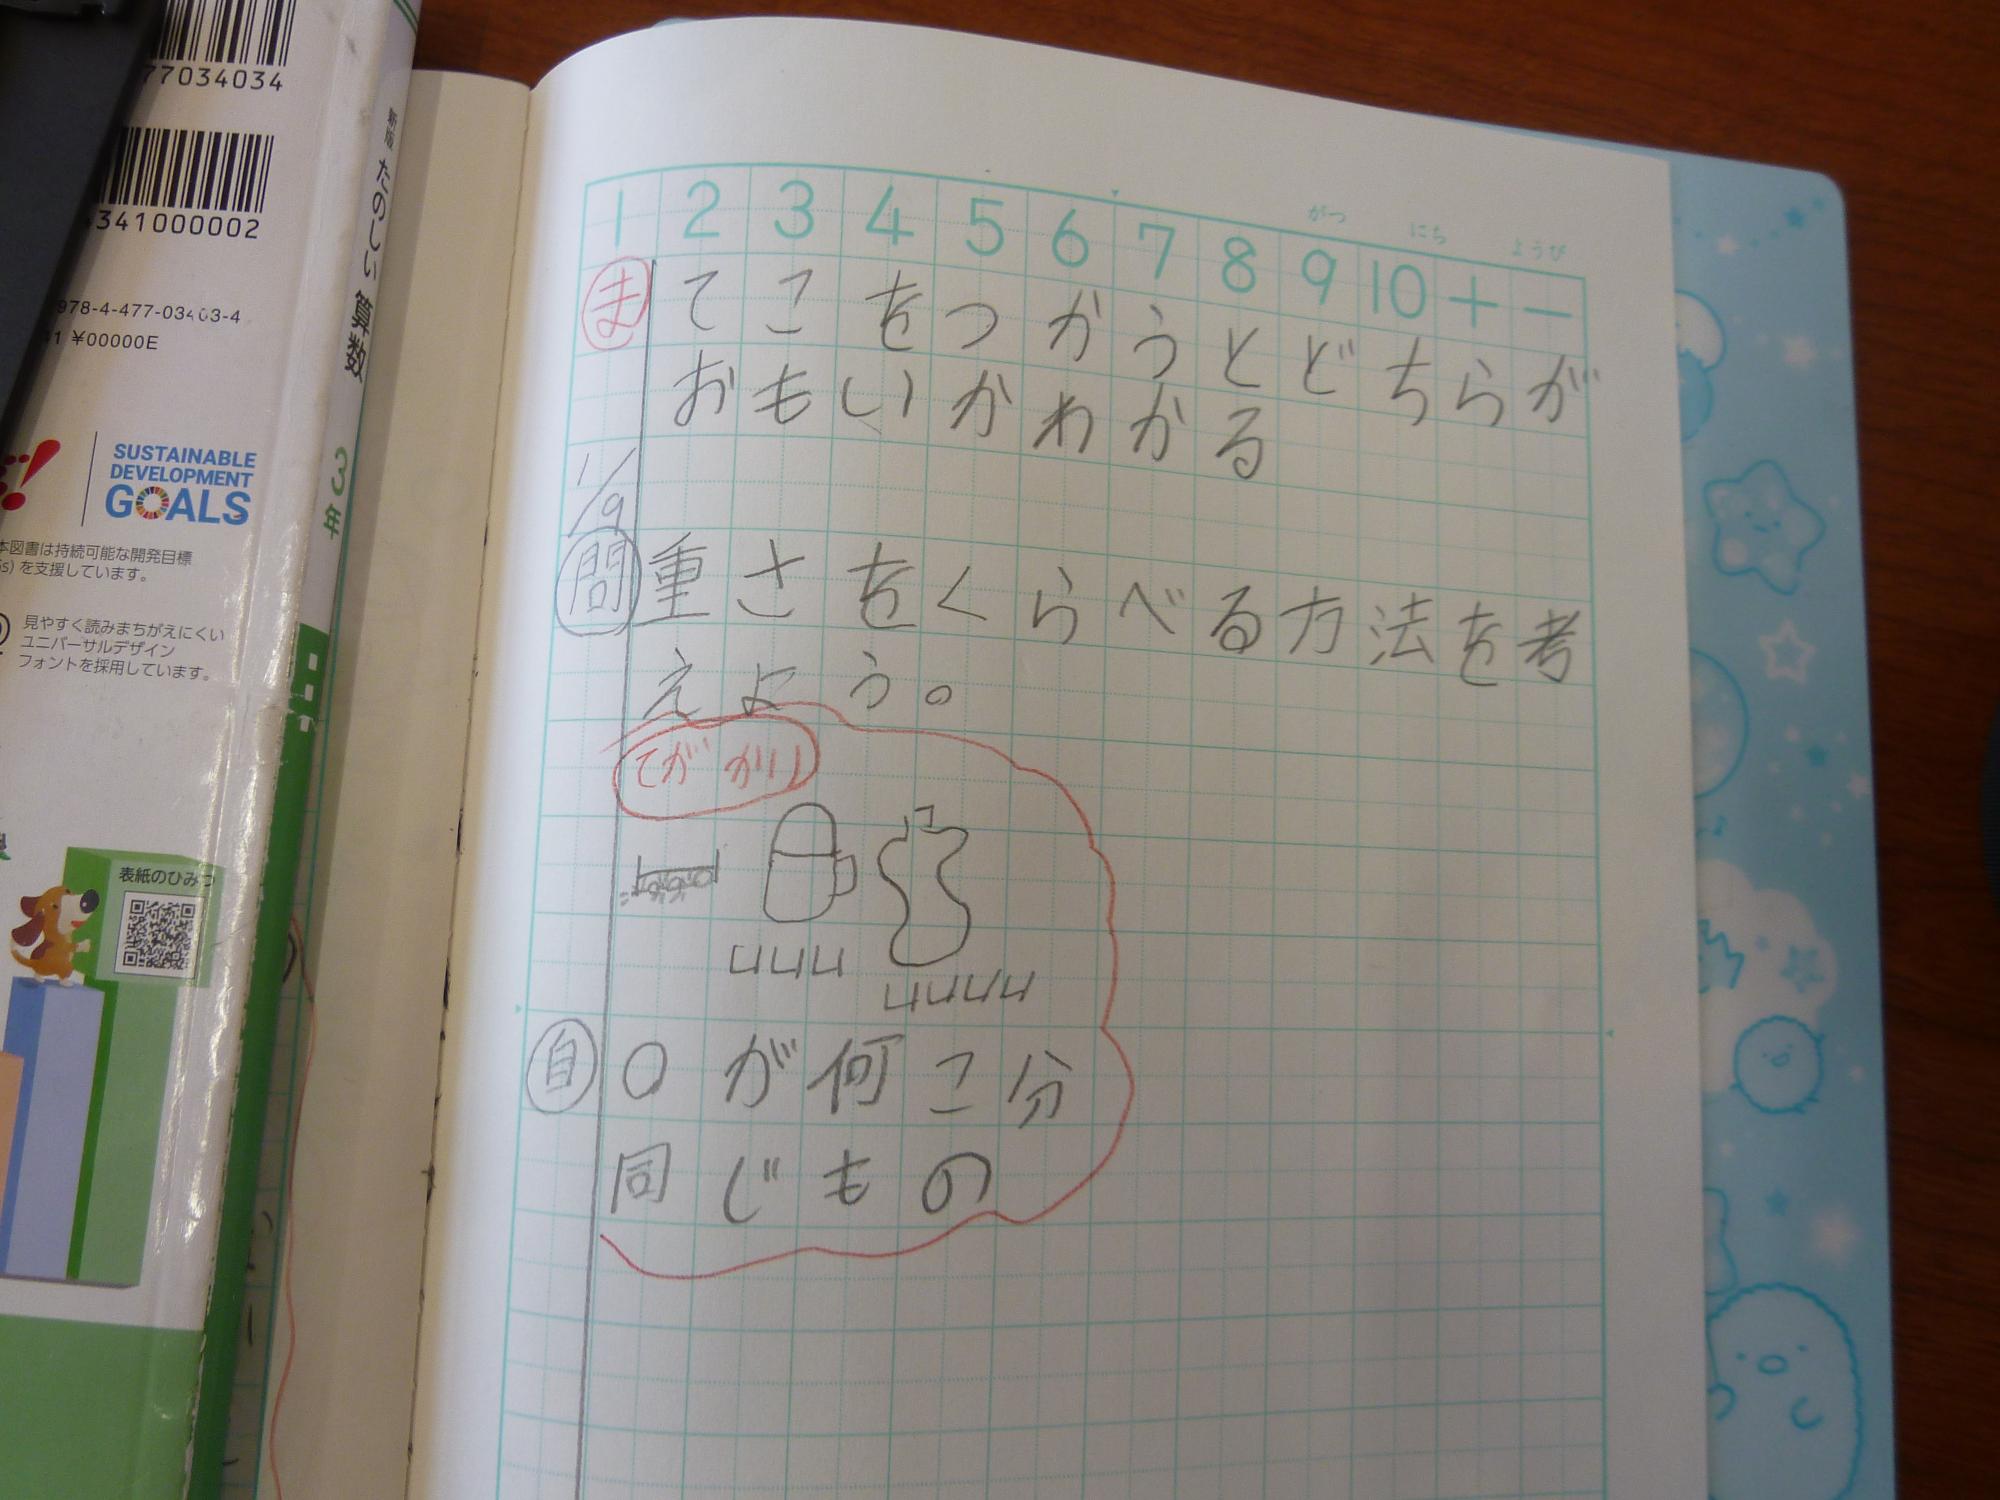 77034034
4341000002
978-4-477-03403-4
¥00000E
SUSTAINABLE
DEVELOPMENT
GOALS
本図書は持続可能な開発目標
を支援しています。
見やすく読みまちがえにくい
ユニバーサルデザイン
フォントを採用しています。
表紙のひみつ
新版 たのしい 算数 3年
がつ にち ようび
1 2 3 4 5 6 7 8 9 10 + −
ま てこをつかうとどちらが
おもいかわかる
1/9
問 重さをくらべる方法を考
えよう。
てがかり
自 ○が何こ分
同じもの